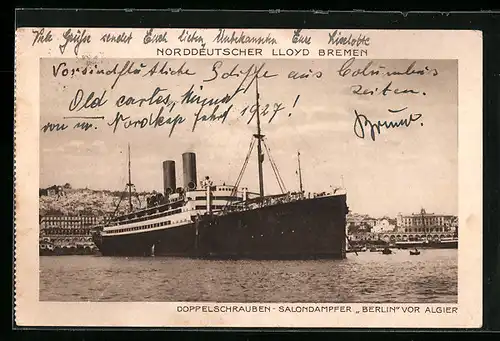 Viele Grüsse sendet Euch lieben Unbekannten Eure Liselotte
NORDDEUTSCHER LLOYD BREMEN
Vorsindflutliche Schiffe aus Columbus
zeiten.
Old carles,
von m. Nordkap fahrt 1927!
DOPPELSCHRAUBEN - SALONDAMPFER „BERLIN" VOR ALGIER